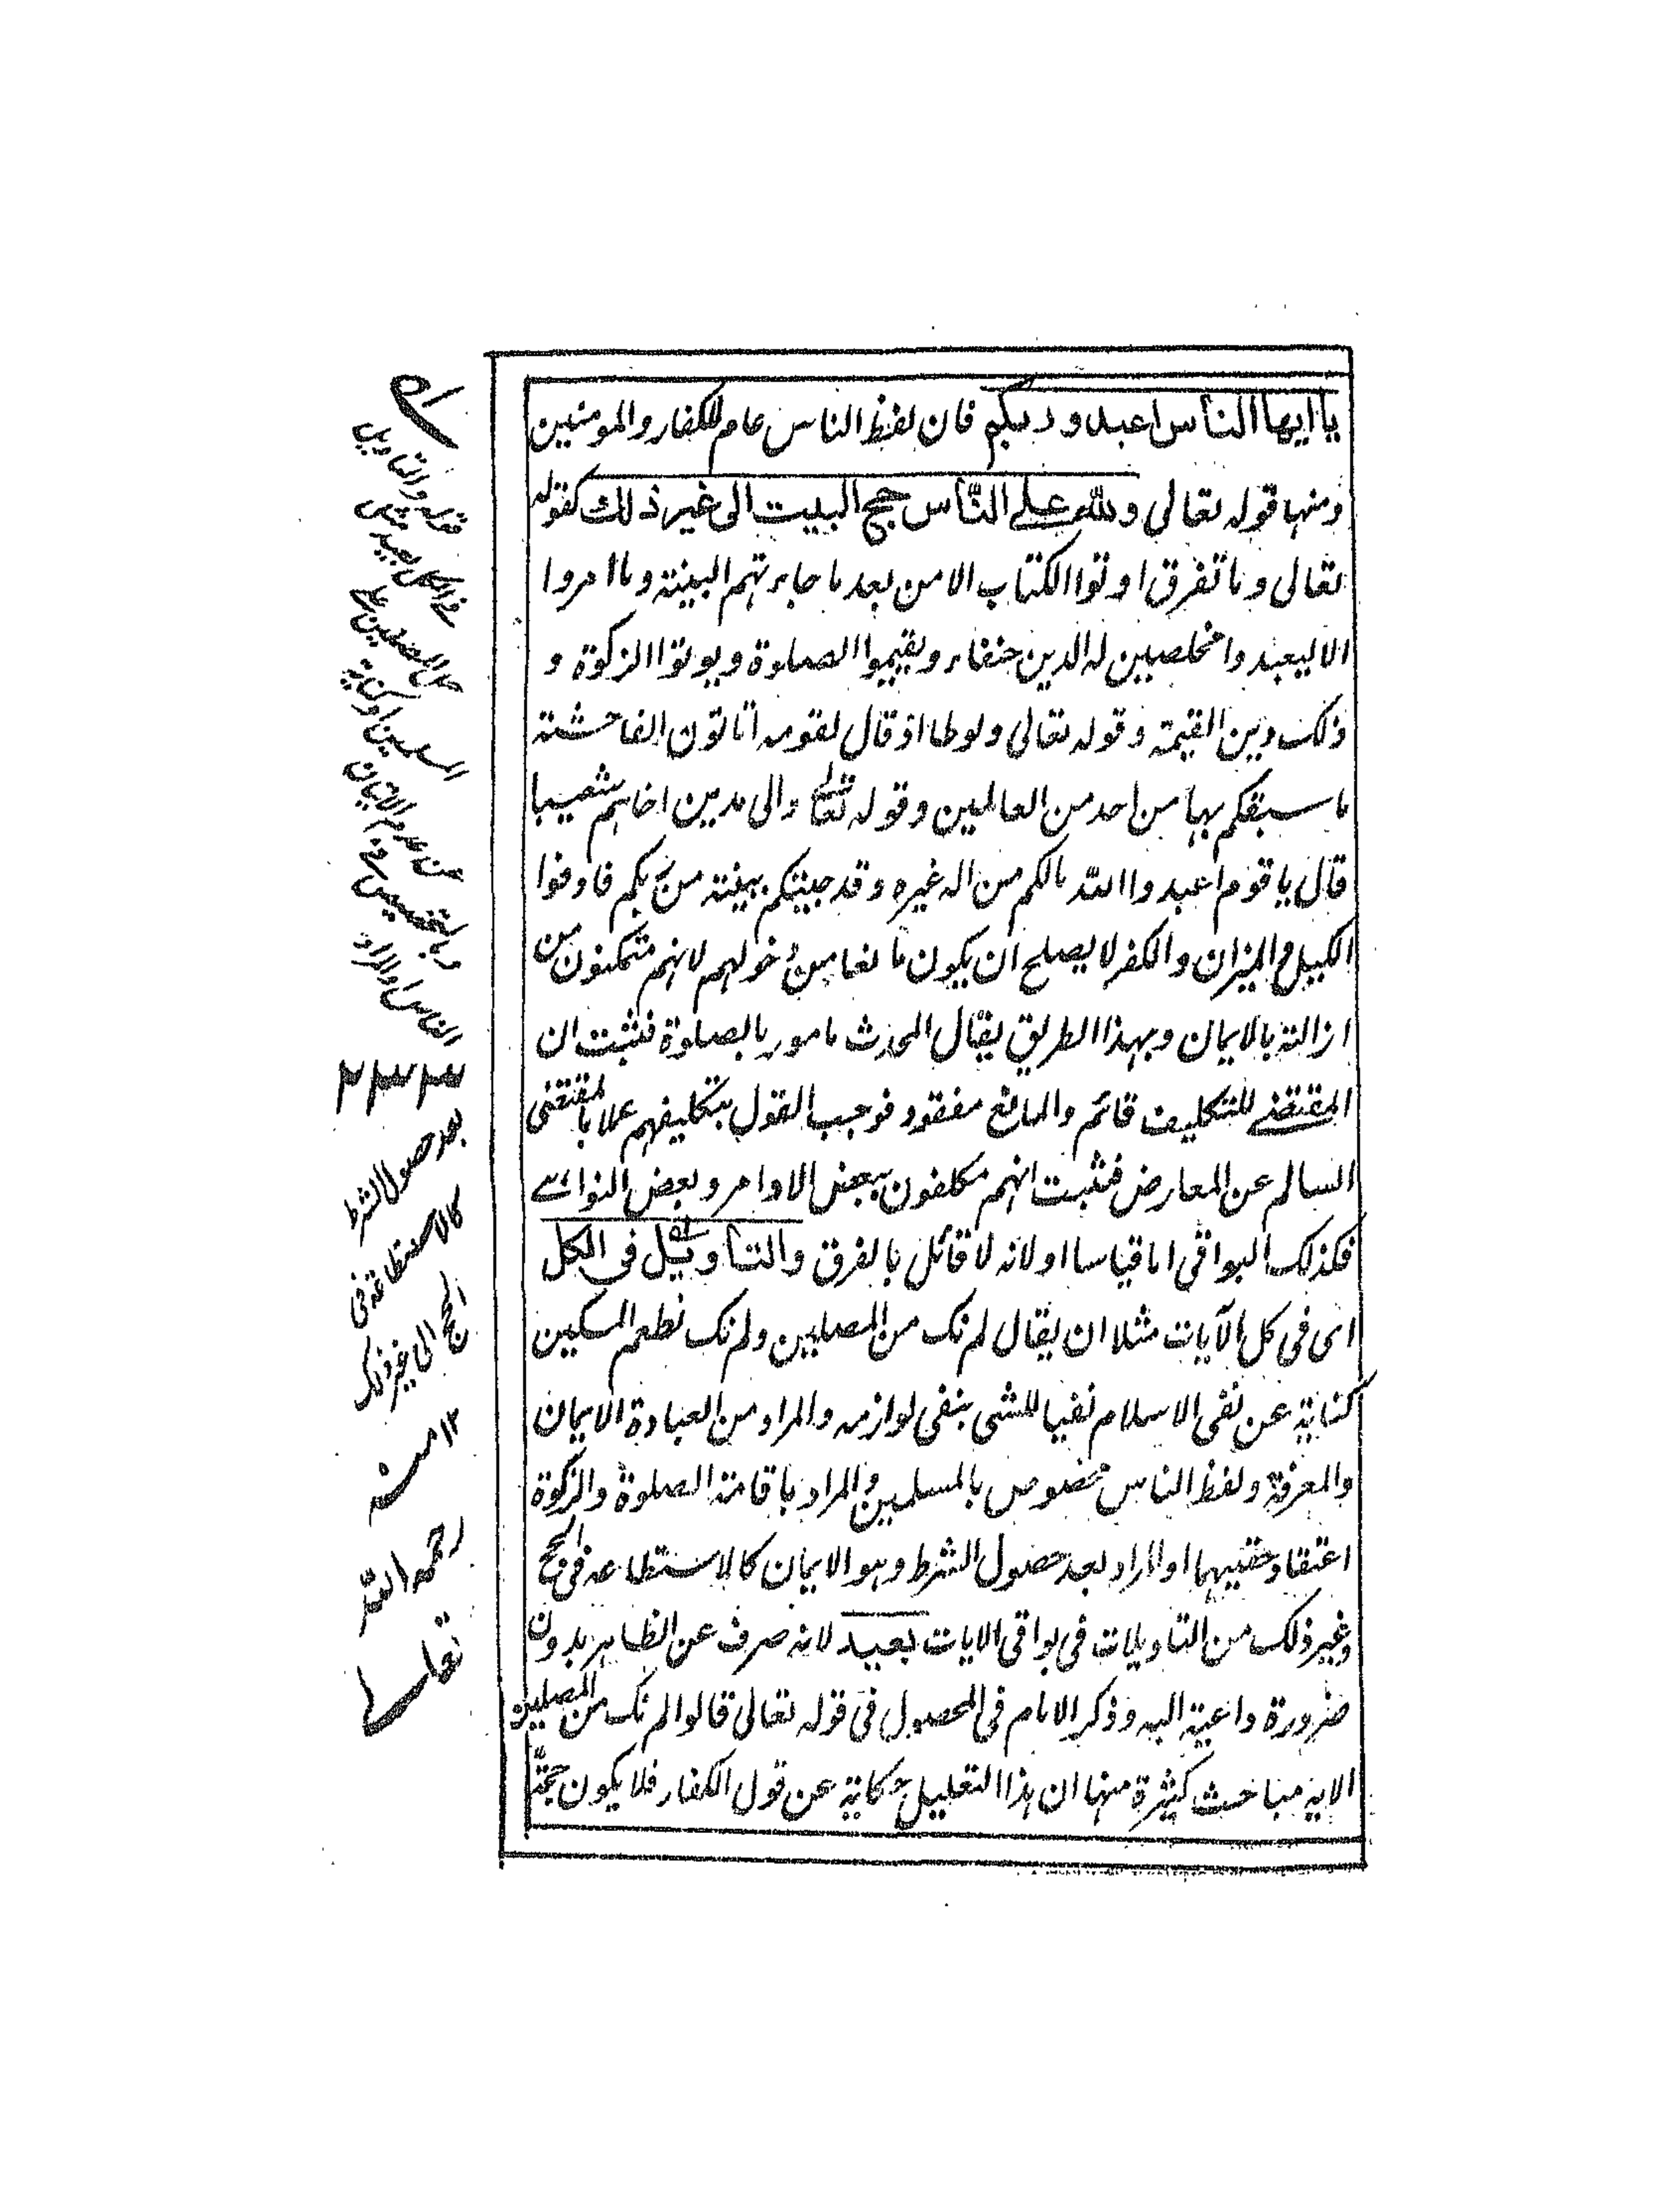 يا ايها الناس اعبدوا ربكم فان لفظ الناس عام للكفار والمومنين
ومنها قوله تعالى ولله على النّاس حج البيت الى غير ذلك كقوله
تعالى وما تفرق اوتوا الكتاب الا من بعد ما جاءتهم البينة وما امروا
الا ليعبدوا مخلصين له الدين حنفاء ويقيموا الصلوة ويوتوا الزكوة و
ذلك دين القيمة وقوله تعالى ولوطا اذ قال لقومه اتاتون الفاحشة
ما سبقكم بها من احد من العالمين وقوله تعالى والى مدين اخاهم شعيبا
قال يا قوم اعبدوا الله مالكم من اله غيره وقد جيتكم ببينة من ربكم فاوفوا
الكيل والميزان والكفر لا يصلح ان يكون مانعا من دخولهم لانهم متمكنون من
ازالته بالايمان وبهذا الطريق يقال المحدث مامور بالصلوة فثبت ان
المقتضى للتكليف قائم والمانع مفقود فوجب القول بتكليفهم عملا بالمقتضى
السالم عن المعارض فثبت انهم مكلفون ببعض الاوامر وبعض النواهى
فكذلك البواقى اما قياسا او لانه لا قائل بالفرق والتاويل فى الكل
اى فى كل الآيات مثلا ان يقال لم نك من المصلين ولم نك نطعم المسكين
كناية عن نفى الاسلام نفيا للشى بنفى لوازمه والمراد من العبادة الايمان
والمعرفة ولفظ الناس مخصوص بالمسلمين والمراد باقامة الصلوة والزكوة
اعتقاد حقيتهما او المراد بعد حصول الشرط وهو الايمان كالاستطاعة فى الحج
وغير ذلك من التاويلات فى بواقى الايات بعيد لانه صرف عن الظاهر بدون
ضرورة داعية اليه وذكر الامام فى المحصول فى قوله تعالى قالوا لم نك من المصلين
الاية مباحث كثيرة منها ان هذا التعليل حكاية عن قول الكفار فلا يكون حجة
قوله والتاويل
فى الكل بعيد
المصلين على
المسلمين او كناية
عن عدم الاتيان
وبالتخصيص فى
الناس والمراد
بعد حصول الشرط
كالاستطاعة فى
الحج الى غير ذلك
١٢ منه
رحمه الله
تعالى